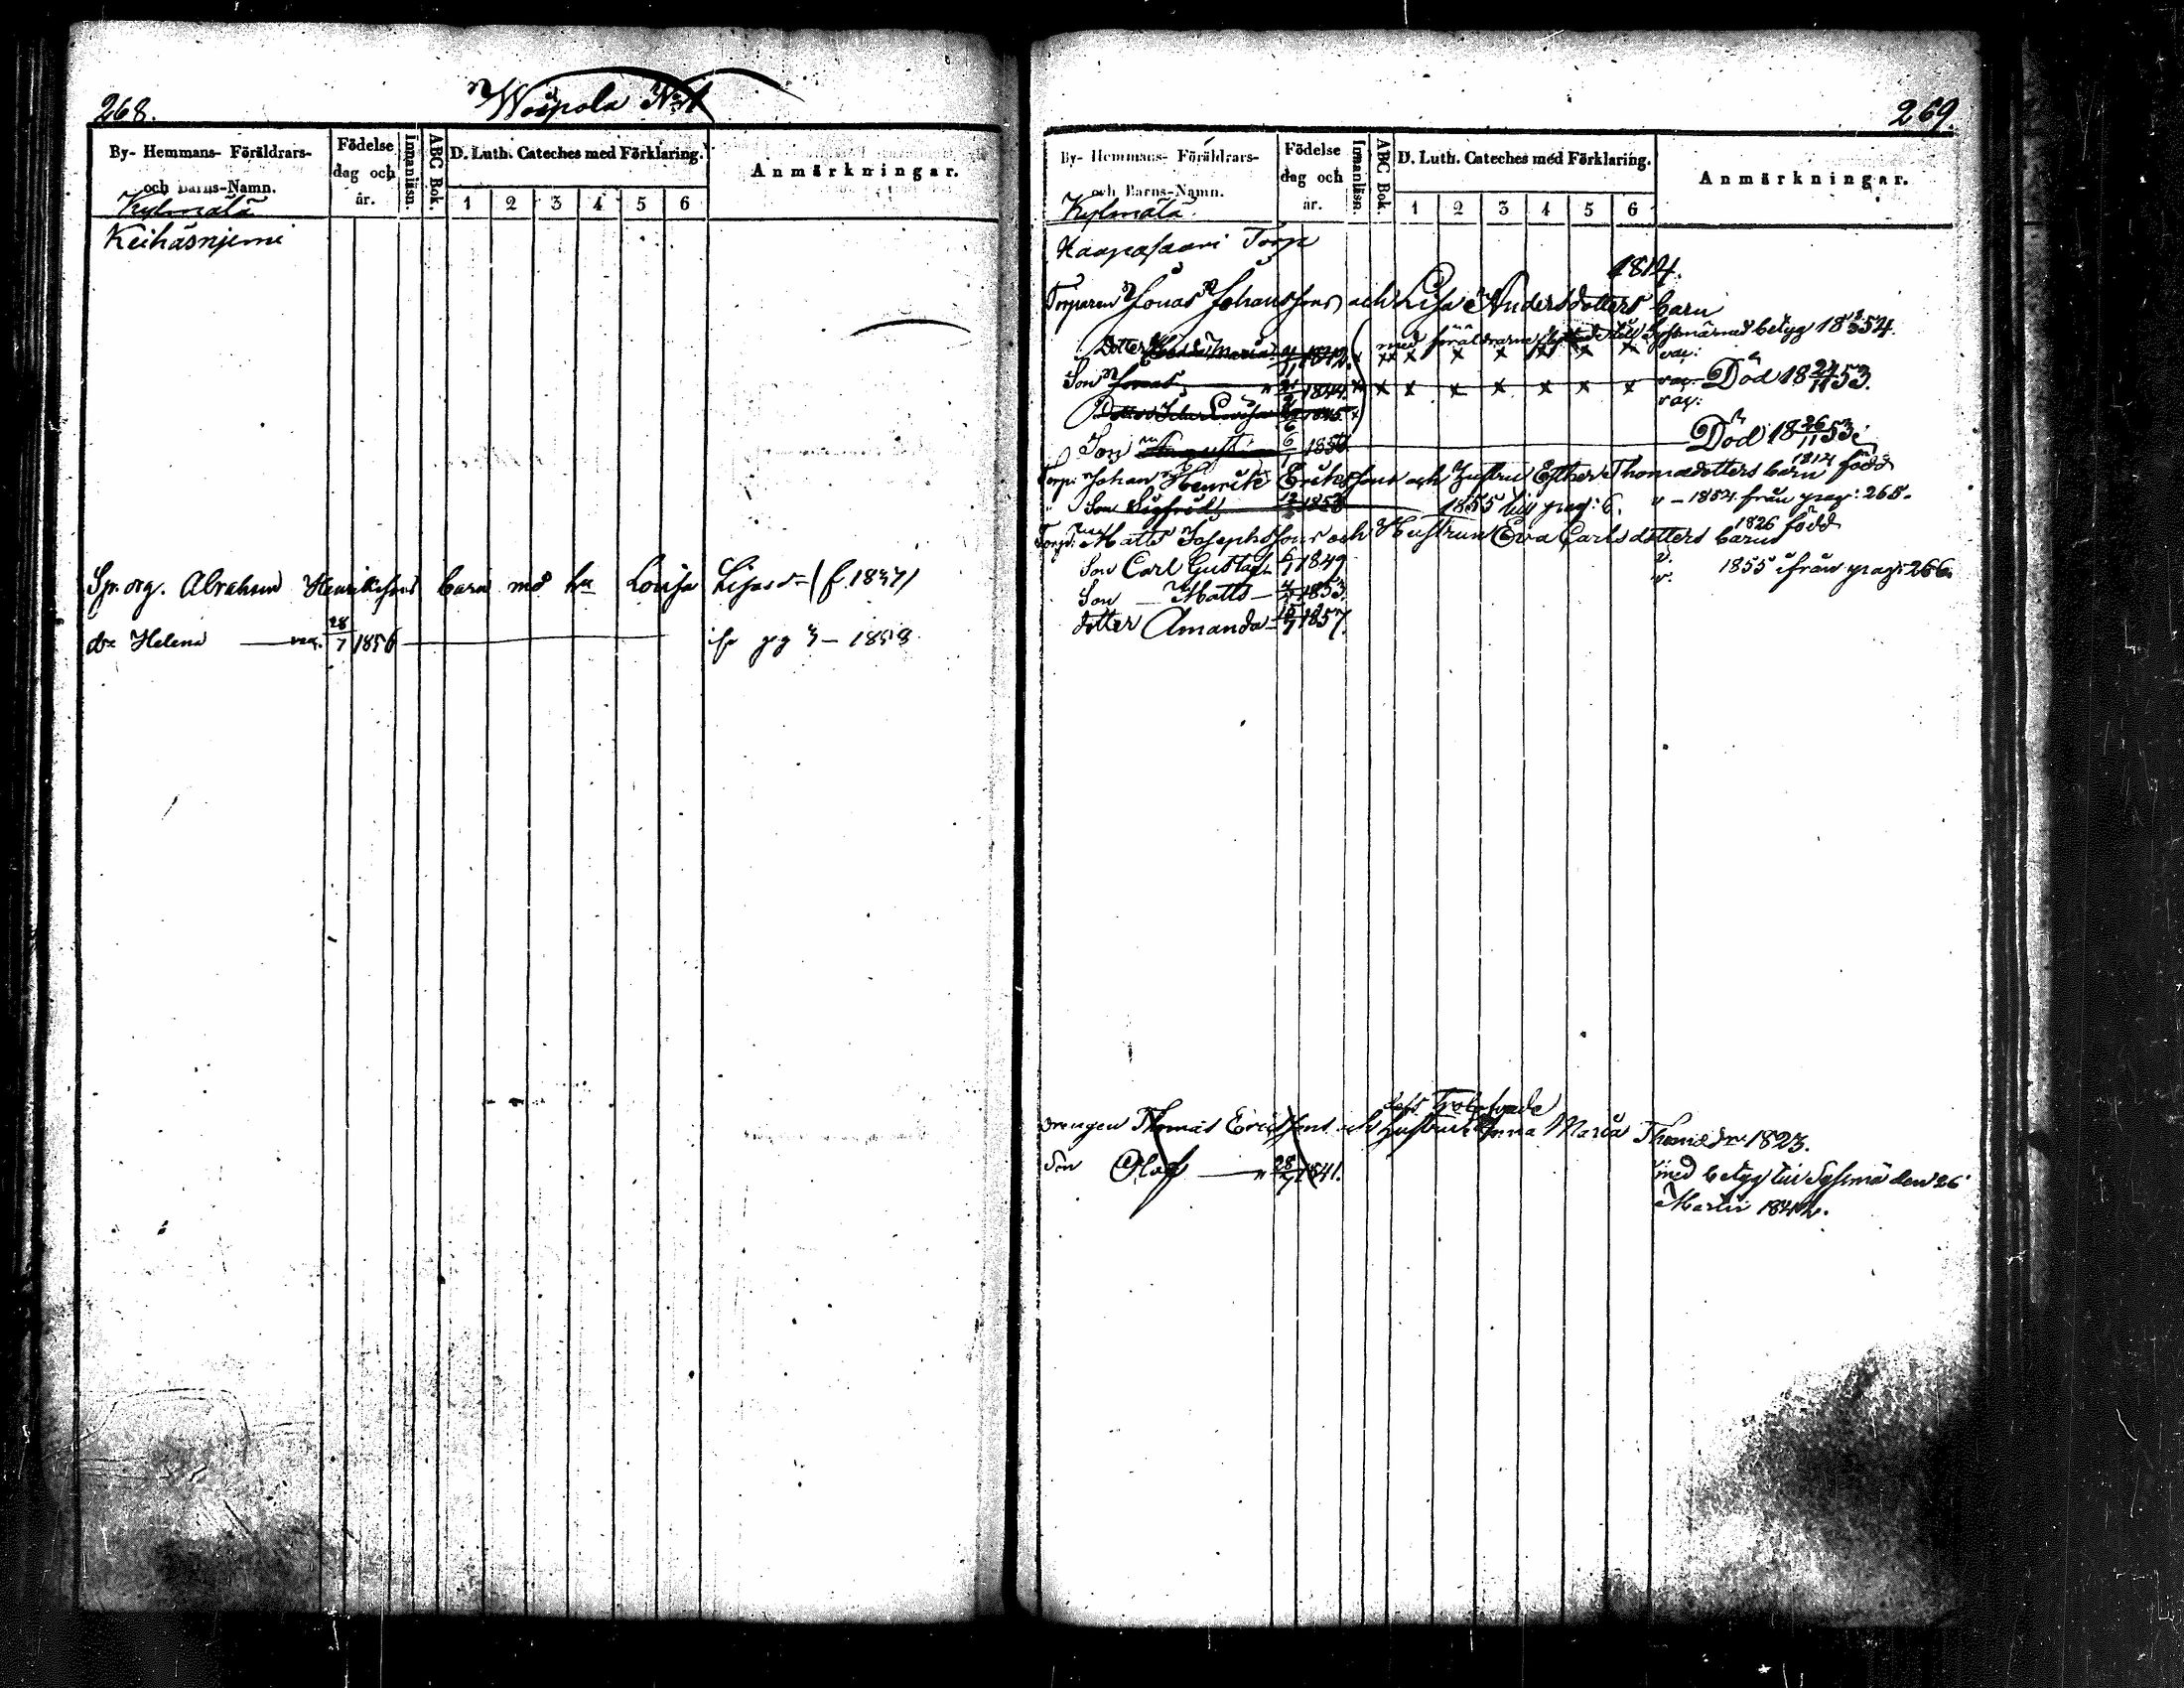 268.
Woipola No 1
By- Hemmans- Föräldrars-
och Barns-Namn.
Födelse
dag och
år.
Innanläsn.
ABC Bok.
D. Luth. Cateches med Förklaring.
1 2 3 4 5 6
Anmärkningar.
Kylmälä
Keihäsnjemi
Sp. org. Abraham Henrikssons barn md hu Lovisa Lisasdr (f. 1837)
dr Helena vac. 28/7 1856 ifr pg 3 - 1858
269.
By- Hemmans- Föräldrars-
och Barns-Namn.
Födelse
dag och
år.
Innanläsn.
ABC Bok.
D. Luth. Cateches med Förklaring.
1 2 3 4 5 6
Anmärkningar.
Kylmälä
Haapasaari Torp
1814.
Torparen Jonas Johansson och Lisa Andersdotters barn
Dotter Maria 1842. x x x x x x x x med föräldrarne till Sysmä med betyg 1854.
vac:
Son Jonas " 1844. x x x x x x x Död 18 24/11 53.
vac:
Dotter Lovisa 1845
Son Augusti 6/1 1850 Död 18 26/11 53.
1814 född
Torp: Johan Henrik Eriksson och hustru Esther Thomædotters barn
" Son Sigfrid 1853 1855 till pag: 6. v - 1854 från pag: 265.
1826 född
Torp: Matts Josephsson och Hustrun Eva Carlsdotters barn
Son Carl Gustaf 1849 v.
Son Matts 1853 v. 1855 ifrån pag: 266.
dotter Amanda 1857.
dess Trolofvade
Drengen Thomas Ericsson och hustru Anna Maria Thomædr. 1823.
Son Olof " 28/7 1841. med betyg till Sysmä den 26
Martii 1842.